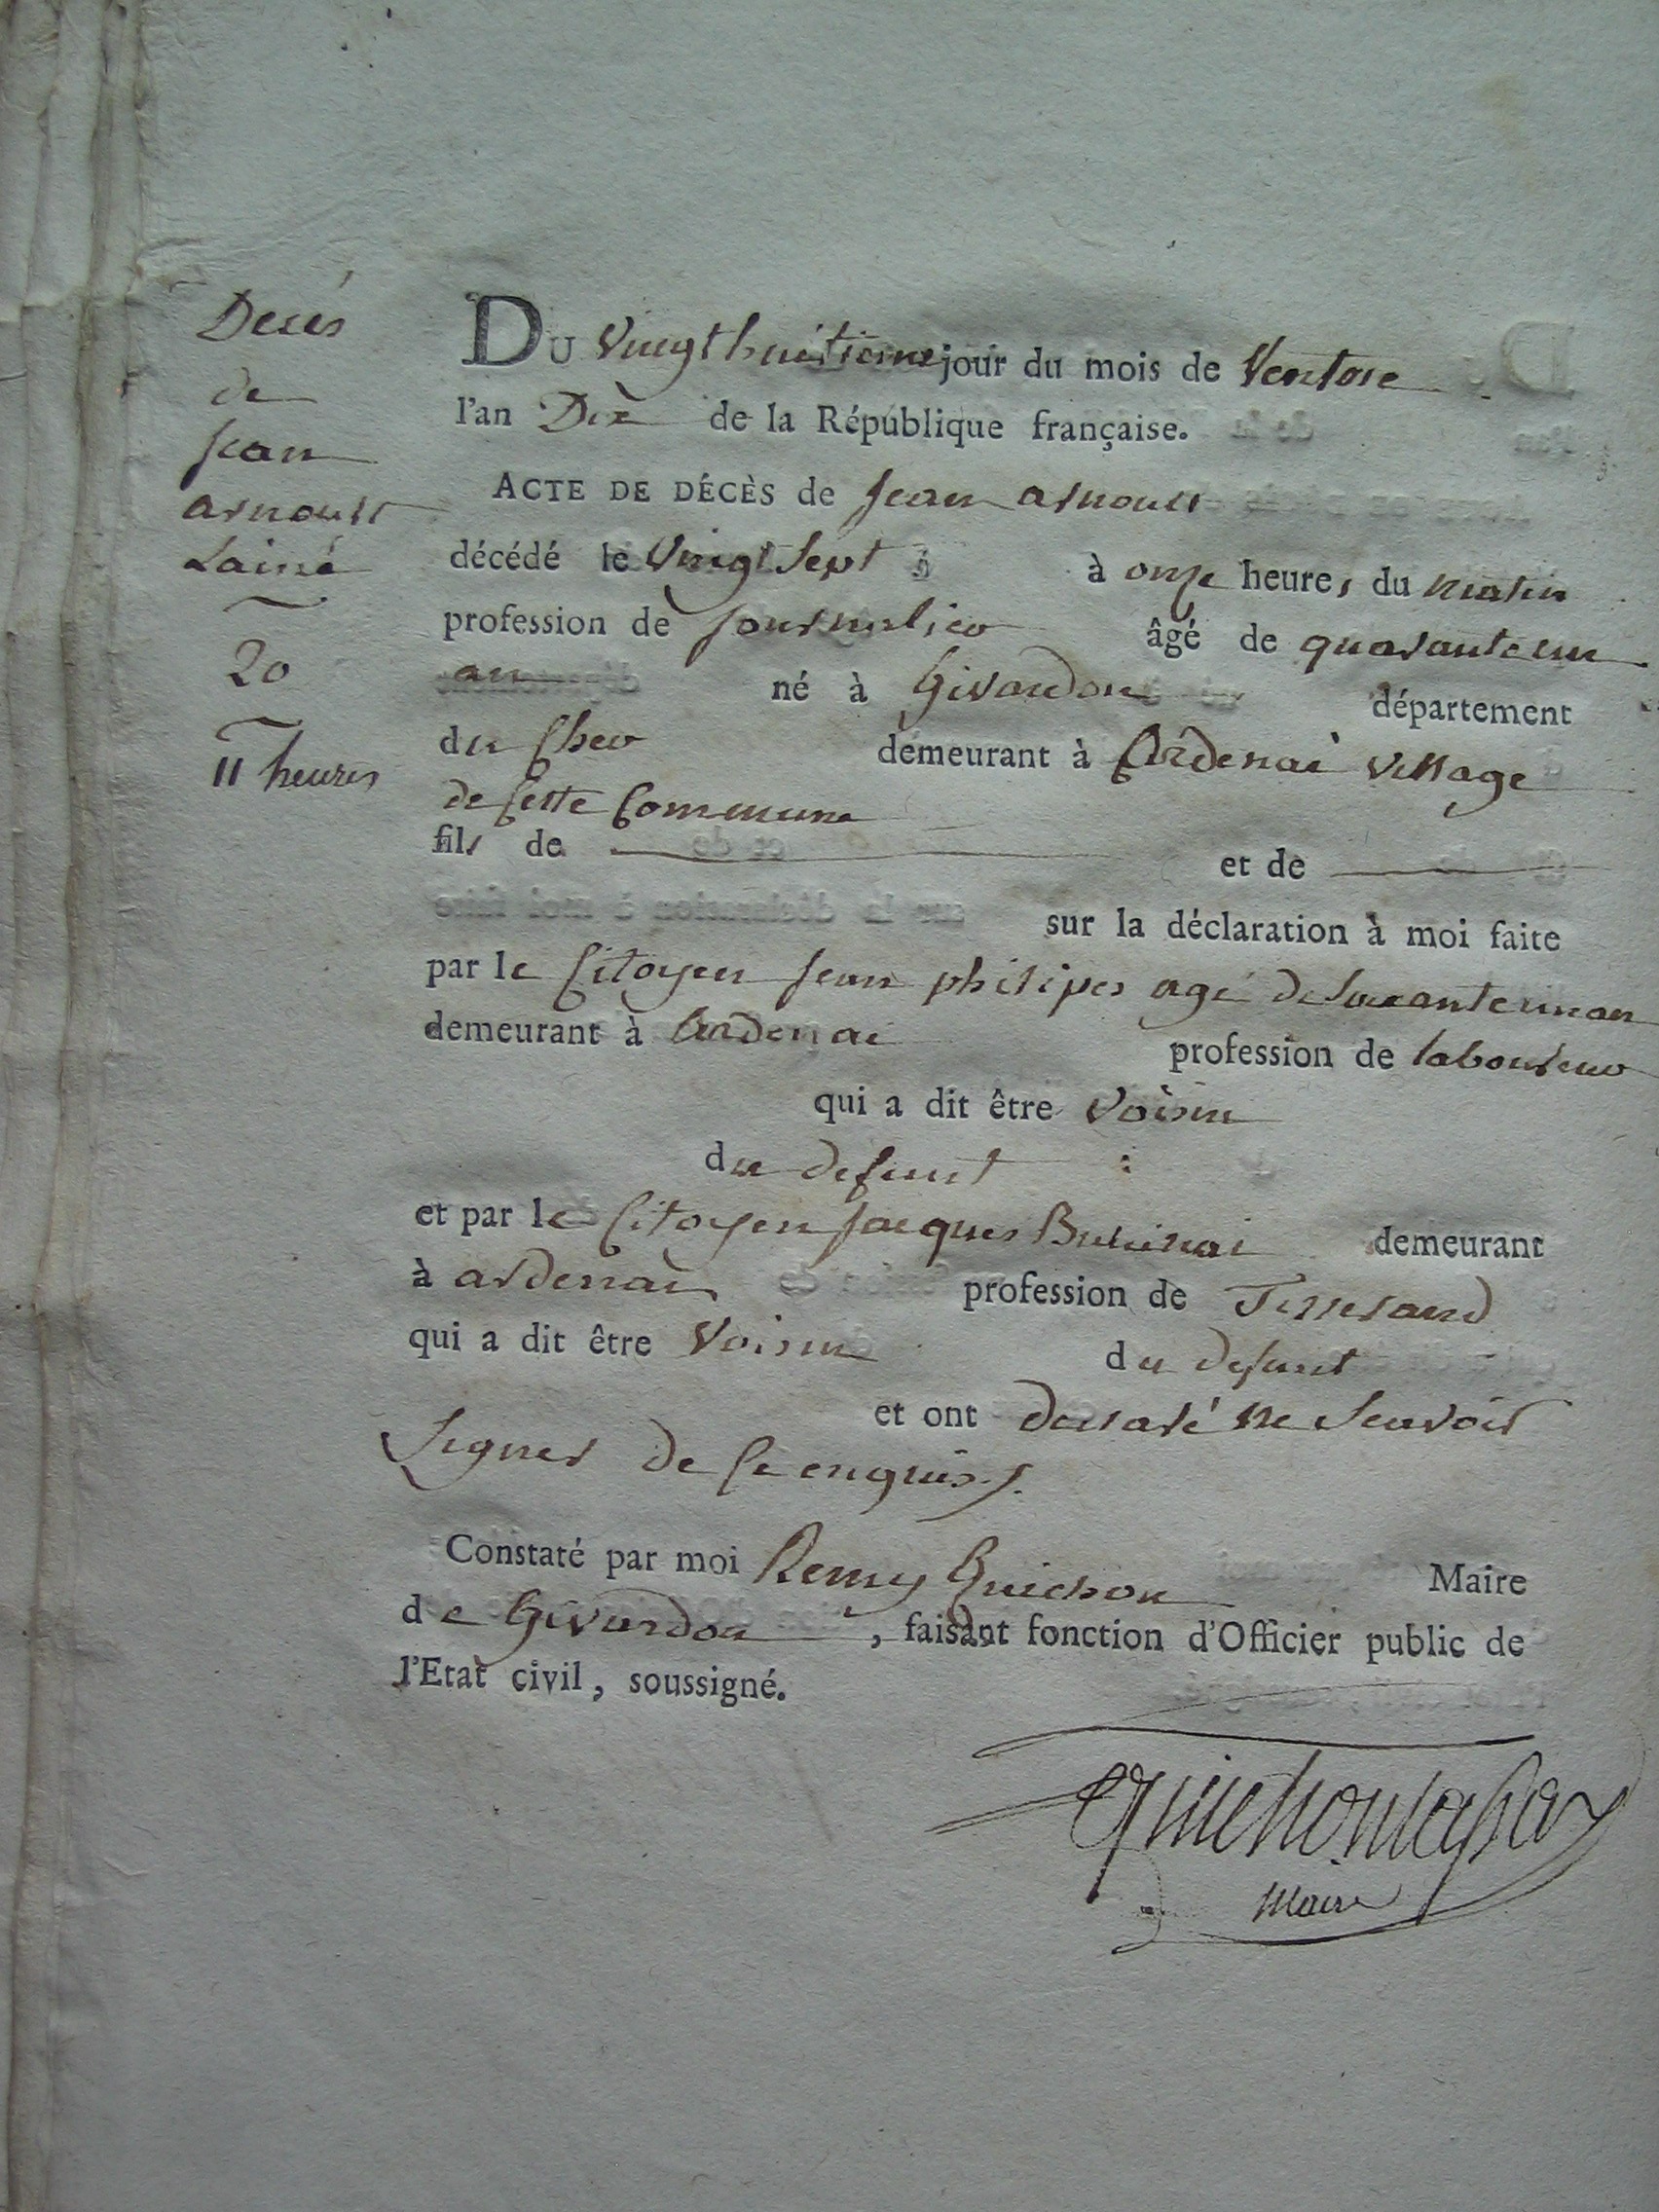 Decés
de
Jean
arnoult
Lainé
20
11 heures
DU Vingt huitieme jour du mois de Ventose
l'an Dix de la République française.
ACTE DE DÉCÈS de Jean arnoult
décédé le Vingt Sept à onze heures du matin
profession de Journalier âgé de quarante un
an né à Givardon département
du Cher demeurant à Ardenai village
de Cette Commune
fils de et de
sur la déclaration à moi faite
par le Citoyen Jean philipes agé de Soixante un an
demeurant à Ardenai profession de laboureur
qui a dit être Voisin
du defunt
et par le Citoyen Jacques demeurant
à ardenai profession de Tisserand
qui a dit être Voisin du defunt
et ont declaré ne Scavoir
Signer de Ce enquis
Constaté par moi Remy Guichon Maire
de Givardon, faisant fonction d'Officier public de
l'Etat civil, soussigné.
Maire